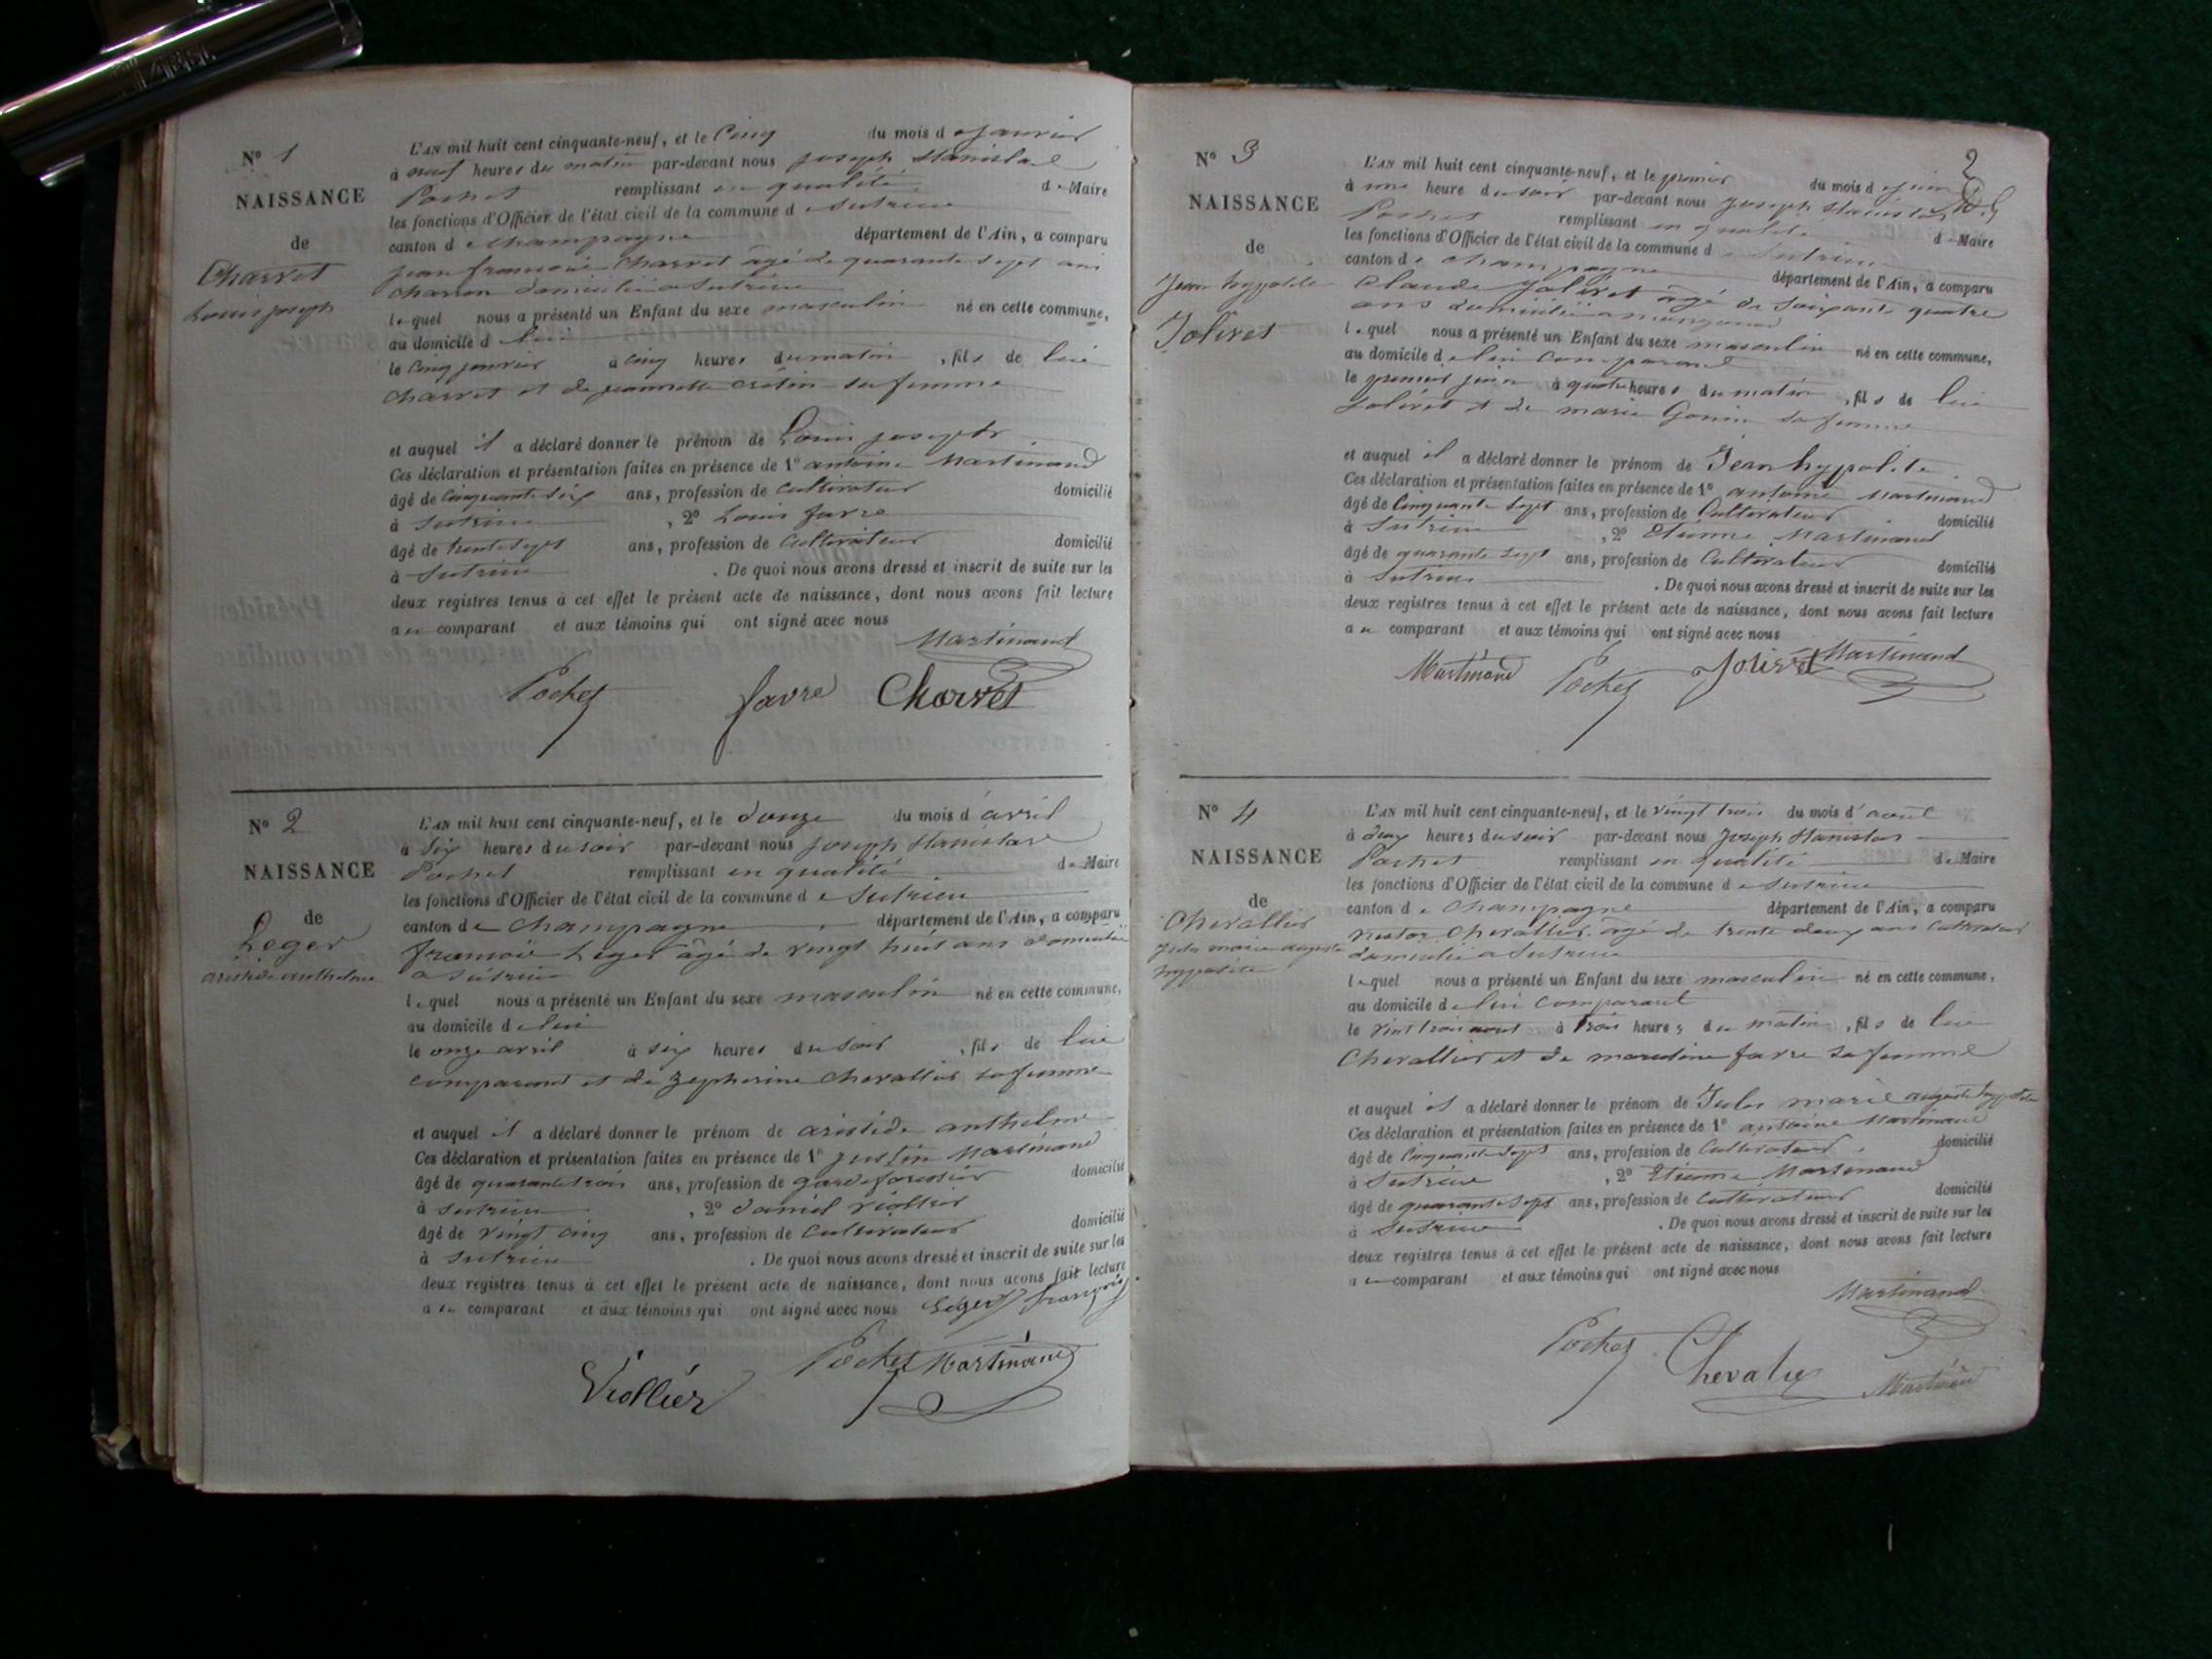 N° 1
NAISSANCE
de
Charvet
Louis joseph
L'AN mil huit cent cinquante-neuf, et le Cinq du mois de janvier
à neuf heures du matin par-devant nous joseph Stanislas
Pochet remplissant en qualité de Maire
les fonctions d'Officier de l'état civil de la commune de Sutrieu
canton de Champagne département de l'Ain, a comparu
jean françois Charvet âgé de quarante sept ans
charron domicilié a Sutrieu
lequel nous a présenté un Enfant du sexe masculin né en cette commune,
au domicile de lui
le Cinq janvier à cinq heures du matin, fils de lui
Charvet et de jeannette Crétin sa femme
et auquel il a déclaré donner le prénom de Louis joseph
Ces déclaration et présentation faites en présence de 1° antoine Martinand
âgé de Cinquante six ans, profession de Cultivateur domicilié
à Sutrieu, 2° Louis favre
âgé de trente sept ans, profession de Cultivateur domicilié
à Sutrieu. De quoi nous avons dressé et inscrit de suite sur les
deux registres tenus à cet effet le présent acte de naissance, dont nous avons fait lecture
au comparant et aux témoins qui ont signé avec nous
Martinand
Pochet favre Charvet
N° 2
NAISSANCE
de
Leger
aristide anthelme
L'AN mil huit cent cinquante-neuf, et le douze du mois d'avril
à six heures du soir par-devant nous joseph Stanislas
Pochet remplissant en qualité de Maire
les fonctions d'Officier de l'état civil de la commune de Sutrieu
canton de Champagne département de l'Ain, a comparu
françois Leger âgé de vingt huit ans domicilié
a Sutrieu
lequel nous a présenté un Enfant du sexe masculin né en cette commune,
au domicile de lui
le onze avril à six heures du soir, fils de lui
comparant et de Zepherine Chevallier sa femme
et auquel il a déclaré donner le prénom de aristide anthelme
Ces déclaration et présentation faites en présence de 1° justin Martinand
âgé de quarante trois ans, profession de garde forestier domicilié
à Sutrieu, 2° daniel viollier
âgé de vingt cinq ans, profession de Cultivateur domicilié
à Sutrieu. De quoi nous avons dressé et inscrit de suite sur les
deux registres tenus à cet effet le présent acte de naissance, dont nous avons fait lecture
au comparant et aux témoins qui ont signé avec nous Léger françois
Pochet Martinand
Viollier
2
N° 3
NAISSANCE
de
Jean hypolite
Jolivet
L'AN mil huit cent cinquante-neuf, et le premier du mois de juin
à une heure du soir par-devant nous joseph Stanislas
Pochet remplissant en qualité de Maire
les fonctions d'Officier de l'état civil de la commune de Sutrieu
canton de Champagne département de l'Ain, a comparu
Claude Jolivet âgé de soixante quatre
ans domicilié a
lequel nous a présenté un Enfant du sexe masculin né en cette commune,
au domicile de lui comparant
le premier juin à quatre heures du matin, fils de lui
Jolivet et de marie Gonin sa femme
et auquel il a déclaré donner le prénom de Jean hypolite
Ces déclaration et présentation faites en présence de 1° antoine Martinand
âgé de Cinquante sept ans, profession de Cultivateur domicilié
à Sutrieu, 2° Etienne Martinand
âgé de quarante sept ans, profession de Cultivateur domicilié
à Sutrieu. De quoi nous avons dressé et inscrit de suite sur les
deux registres tenus à cet effet le présent acte de naissance, dont nous avons fait lecture
au comparant et aux témoins qui ont signé avec nous
Martinand Pochet Jolivet Martinand
N° 4
NAISSANCE
de
Chevallier
Jules marie auguste
hyppolite
L'AN mil huit cent cinquante-neuf, et le vingt trois du mois d'aout
à deux heures du soir par-devant nous Joseph Stanislas
Pochet remplissant en qualité de Maire
les fonctions d'Officier de l'état civil de la commune de Sutrieu
canton de Champagne département de l'Ain, a comparu
Nestor Chevallier âgé de trente deux ans Cultivateur
domicilié a Sutrieu
lequel nous a présenté un Enfant du sexe masculin né en cette commune,
au domicile de lui comparant
le vint trois aout à trois heures du matin, fils de lui
Chevallier et de favre sa femme
et auquel il a déclaré donner le prénom de Jules marie auguste hyppolite
Ces déclaration et présentation faites en présence de 1° antoine Martinand
âgé de Cinquante sept ans, profession de Cultivateur domicilié
à Sutrieu, 2° Etienne Martinand
âgé de quarante sept ans, profession de Cultivateur domicilié
à Sutrieu. De quoi nous avons dressé et inscrit de suite sur les
deux registres tenus à cet effet le présent acte de naissance, dont nous avons fait lecture
au comparant et aux témoins qui ont signé avec nous
Martinand
Pochet Chevalie Martinand